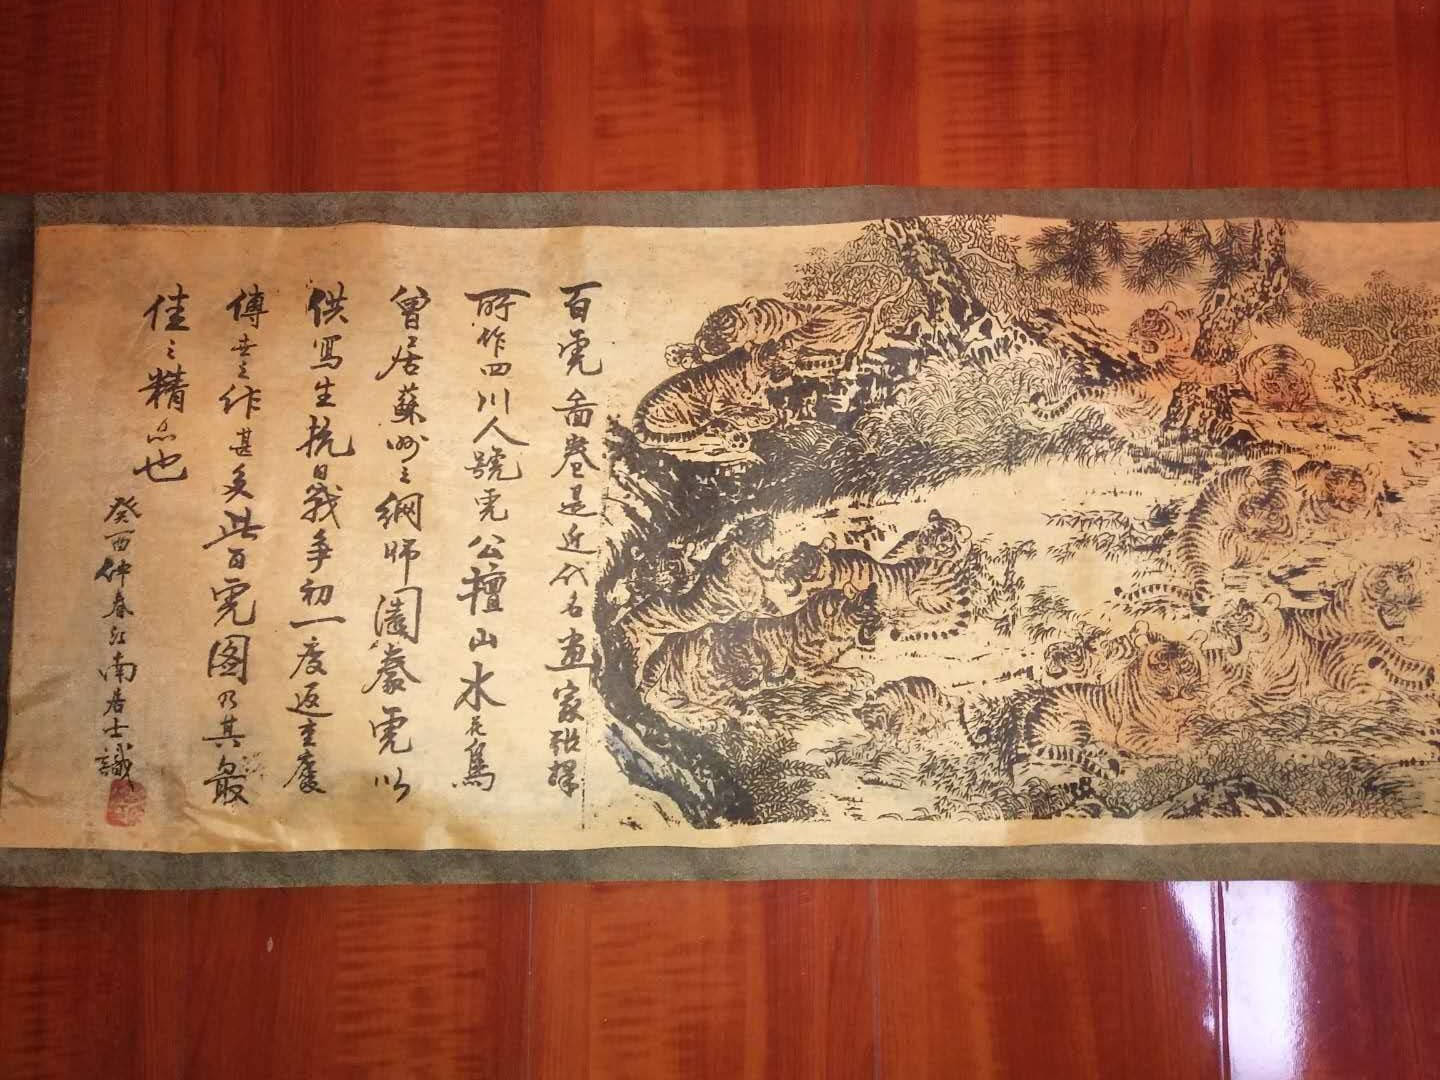 百虎畫卷是近代名画家張擇
所作四川人號虎公擅山水花鳥
曾居蘇州之網師園豢虎以
供寫生抗日戰争初一度返重慶
傳世之作甚多此百虎图乃其最
佳之精品也
癸酉仲春江南居士識